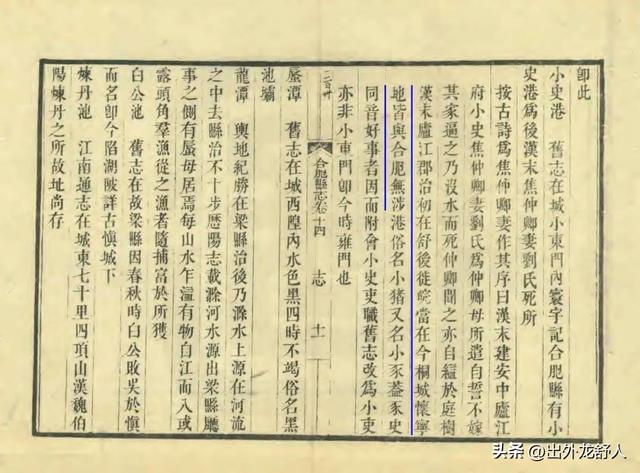 卽此
小史港　舊志在城小東門內寰宇記合肥縣有小
史港爲後漢末焦仲卿妻劉氏死所
按古詩爲焦仲卿妻作其序曰漢末建安中廬江
府小史焦仲卿妻劉氏爲仲卿母所遣自誓不嫁
其家逼之乃沒水而死仲卿聞之亦自縊於庭樹
漢末廬江郡治初在舒後徙皖當在今桐城懷寧
地皆與合肥無涉港俗名小猪又名小豕蓋豕史
同音好事者因而附會小史吏職舊志改爲小吏
亦非小東門卽今時雍門也
合肥縣志卷十四　志　十一
蜃潭　舊志在城西隍內水色黑四時不竭俗名黑
池壩
龍潭　輿地紀勝在梁縣治後乃滁水上源在河流
之中去縣治不十步歷陽志載滁河水源出梁縣廳
事之側有蜃母居焉每山水乍溢有物自江而入或
露頭角羣漁從之漁者隨捕富於所獲
白公池　舊志在故梁縣因春秋時白公敗吳於愼
而名卽今陷湖陂詳古愼城下
煉丹池　江南通志在城東七十里四頂山漢魏伯
陽煉丹之所故址尚存
头条 @出外龙舒人